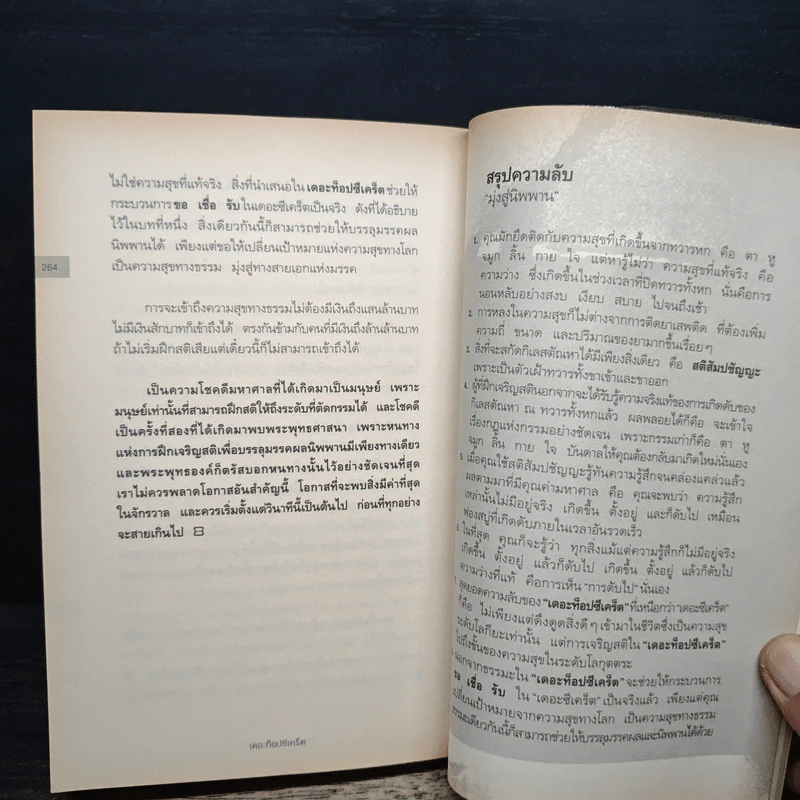 ไม่ใช่ความสุขที่แท้จริง สิ่งที่นำเสนอใน เดอะท็อปซีเคร็ต ช่วยให้
กระบวนการ ขอ เชื่อ รับ ในเดอะซีเคร็ตเป็นจริง ดังที่ได้อธิบาย
ไว้ในบทที่หนึ่ง สิ่งเดียวกันนี้ก็สามารถช่วยให้บรรลุมรรคผล
นิพพานได้ เพียงแต่ขอให้เปลี่ยนเป้าหมายแห่งความสุขทางโลก
264
เป็นความสุขทางธรรม มุ่งสู่ทางสายเอกแห่งมรรค
การจะเข้าถึงความสุขทางธรรมไม่ต้องมีเงินถึงแสนล้านบาท
ไม่มีเงินสักบาทก็เข้าถึงได้ ตรงกันข้ามกับคนที่มีเงินถึงล้านล้านบาท
ถ้าไม่เริ่มฝึกสติเสียแต่เดี๋ยวนี้ก็ไม่สามารถเข้าถึงได้
เป็นความโชคดีมหาศาลที่ได้เกิดมาเป็นมนุษย์ เพราะ
มนุษย์เท่านั้นที่สามารถฝึกสติให้ถึงระดับที่ตัดกรรมได้ และโชคดี
เป็นครั้งที่สองที่ได้เกิดมาพบพระพุทธศาสนา เพราะหนทาง
แห่งการฝึกเจริญสติเพื่อบรรลุมรรคผลนิพพานมีเพียงทางเดียว
และพระพุทธองค์ก็ตรัสบอกหนทางนั้นไว้อย่างชัดเจนที่สุด
เราไม่ควรพลาดโอกาสอันสำคัญนี้ โอกาสที่จะพบสิ่งมีค่าที่สุด
ในจักรวาล และควรเริ่มตั้งแต่วินาทีนี้เป็นต้นไป ก่อนที่ทุกอย่าง
จะสายเกินไป
เดอะท็อปซีเคร็ต
สรุปความลับ
"มุ่งสู่นิพพาน"
1. คุณมักยึดติดกับความสุขที่เกิดขึ้นจากทวารหก คือ ตา หู
จมูก ลิ้น กาย ใจ แต่หารู้ไม่ว่า ความสุขที่แท้จริง คือ
ความว่าง ซึ่งเกิดขึ้นในช่วงเวลาที่ปิดทวารทั้งหก นั่นคือการ
นอนหลับอย่างสงบ เงียบ สบาย ไปจนถึงเช้า
2. การหลงในความสุขก็ไม่ต่างจากการติดยาเสพติด ที่ต้องเพิ่ม
ความถี่ ขนาด และปริมาณของยามากขึ้นเรื่อยๆ
3. สิ่งที่จะสกัดกิเลสตัณหาได้มีเพียงสิ่งเดียว คือ สติสัมปชัญญะ
เพราะเป็นตัวเฝ้าทวารทั้งขาเข้าและขาออก
4. ผู้ที่ฝึกเจริญสตินอกจากจะได้รับรู้ความจริงแท้ของการเกิดดับของ
กิเลสตัณหา ณ ทวารทั้งหกแล้ว ผลพลอยได้ก็คือ จะเข้าใจ
เรื่องกฎแห่งกรรมอย่างชัดเจน เพราะกรรมเก่าก็คือ ตา หู
จมูก ลิ้น กาย ใจ บันดาลให้คุณต้องกลับมาเกิดใหม่นั่นเอง
เมื่อคุณใช้สติสัมปชัญญะรู้ทันความรู้สึกจนคล่องแคล่วแล้ว
ผลตามมาที่มีคุณค่ามหาศาล คือ คุณจะพบว่า ความรู้สึก
เหล่านั้นไม่มีอยู่จริง เกิดขึ้น ตั้งอยู่ และก็ดับไป เหมือน
ฟองสบู่ที่เกิดดับภายในเวลาอันรวดเร็ว
ในที่สุด คุณก็จะรู้ว่า ทุกสิ่งแม้แต่ความรู้สึกก็ไม่มีอยู่จริง
เกิดขึ้น ตั้งอยู่ แล้วก็ดับไป เกิดขึ้น ตั้งอยู่ แล้วก็ดับไป
ความว่างที่แท้ คือการเห็น "การดับไป" นั่นเอง
สุดยอดความลับของ "เดอะท็อปซีเคร็ต" ที่เหนือกว่า "เดอะซีเคร็ต"
ก็คือ ไม่เพียงแต่ดึงดูดสิ่งดีๆ เข้ามาในชีวิตซึ่งเป็นความสุข
ระดับโลกียะเท่านั้น แต่การเจริญสติใน "เดอะท็อปซีเคร็ต"
ไปถึงขั้นของความสุขในระดับโลกุตตระ
นอกจากธรรมะใน "เดอะท็อปซีเคร็ต" จะช่วยให้กระบวนการ
ขอ เชื่อ รับ ใน "เดอะซีเคร็ต" เป็นจริงแล้ว เพียงแต่คุณ
เปลี่ยนเป้าหมายจากความสุขทางโลก เป็นความสุขทางธรรม
ธรรมะเดียวกันนี้ก็สามารถช่วยให้บรรลุมรรคผลและนิพพานได้ด้วย